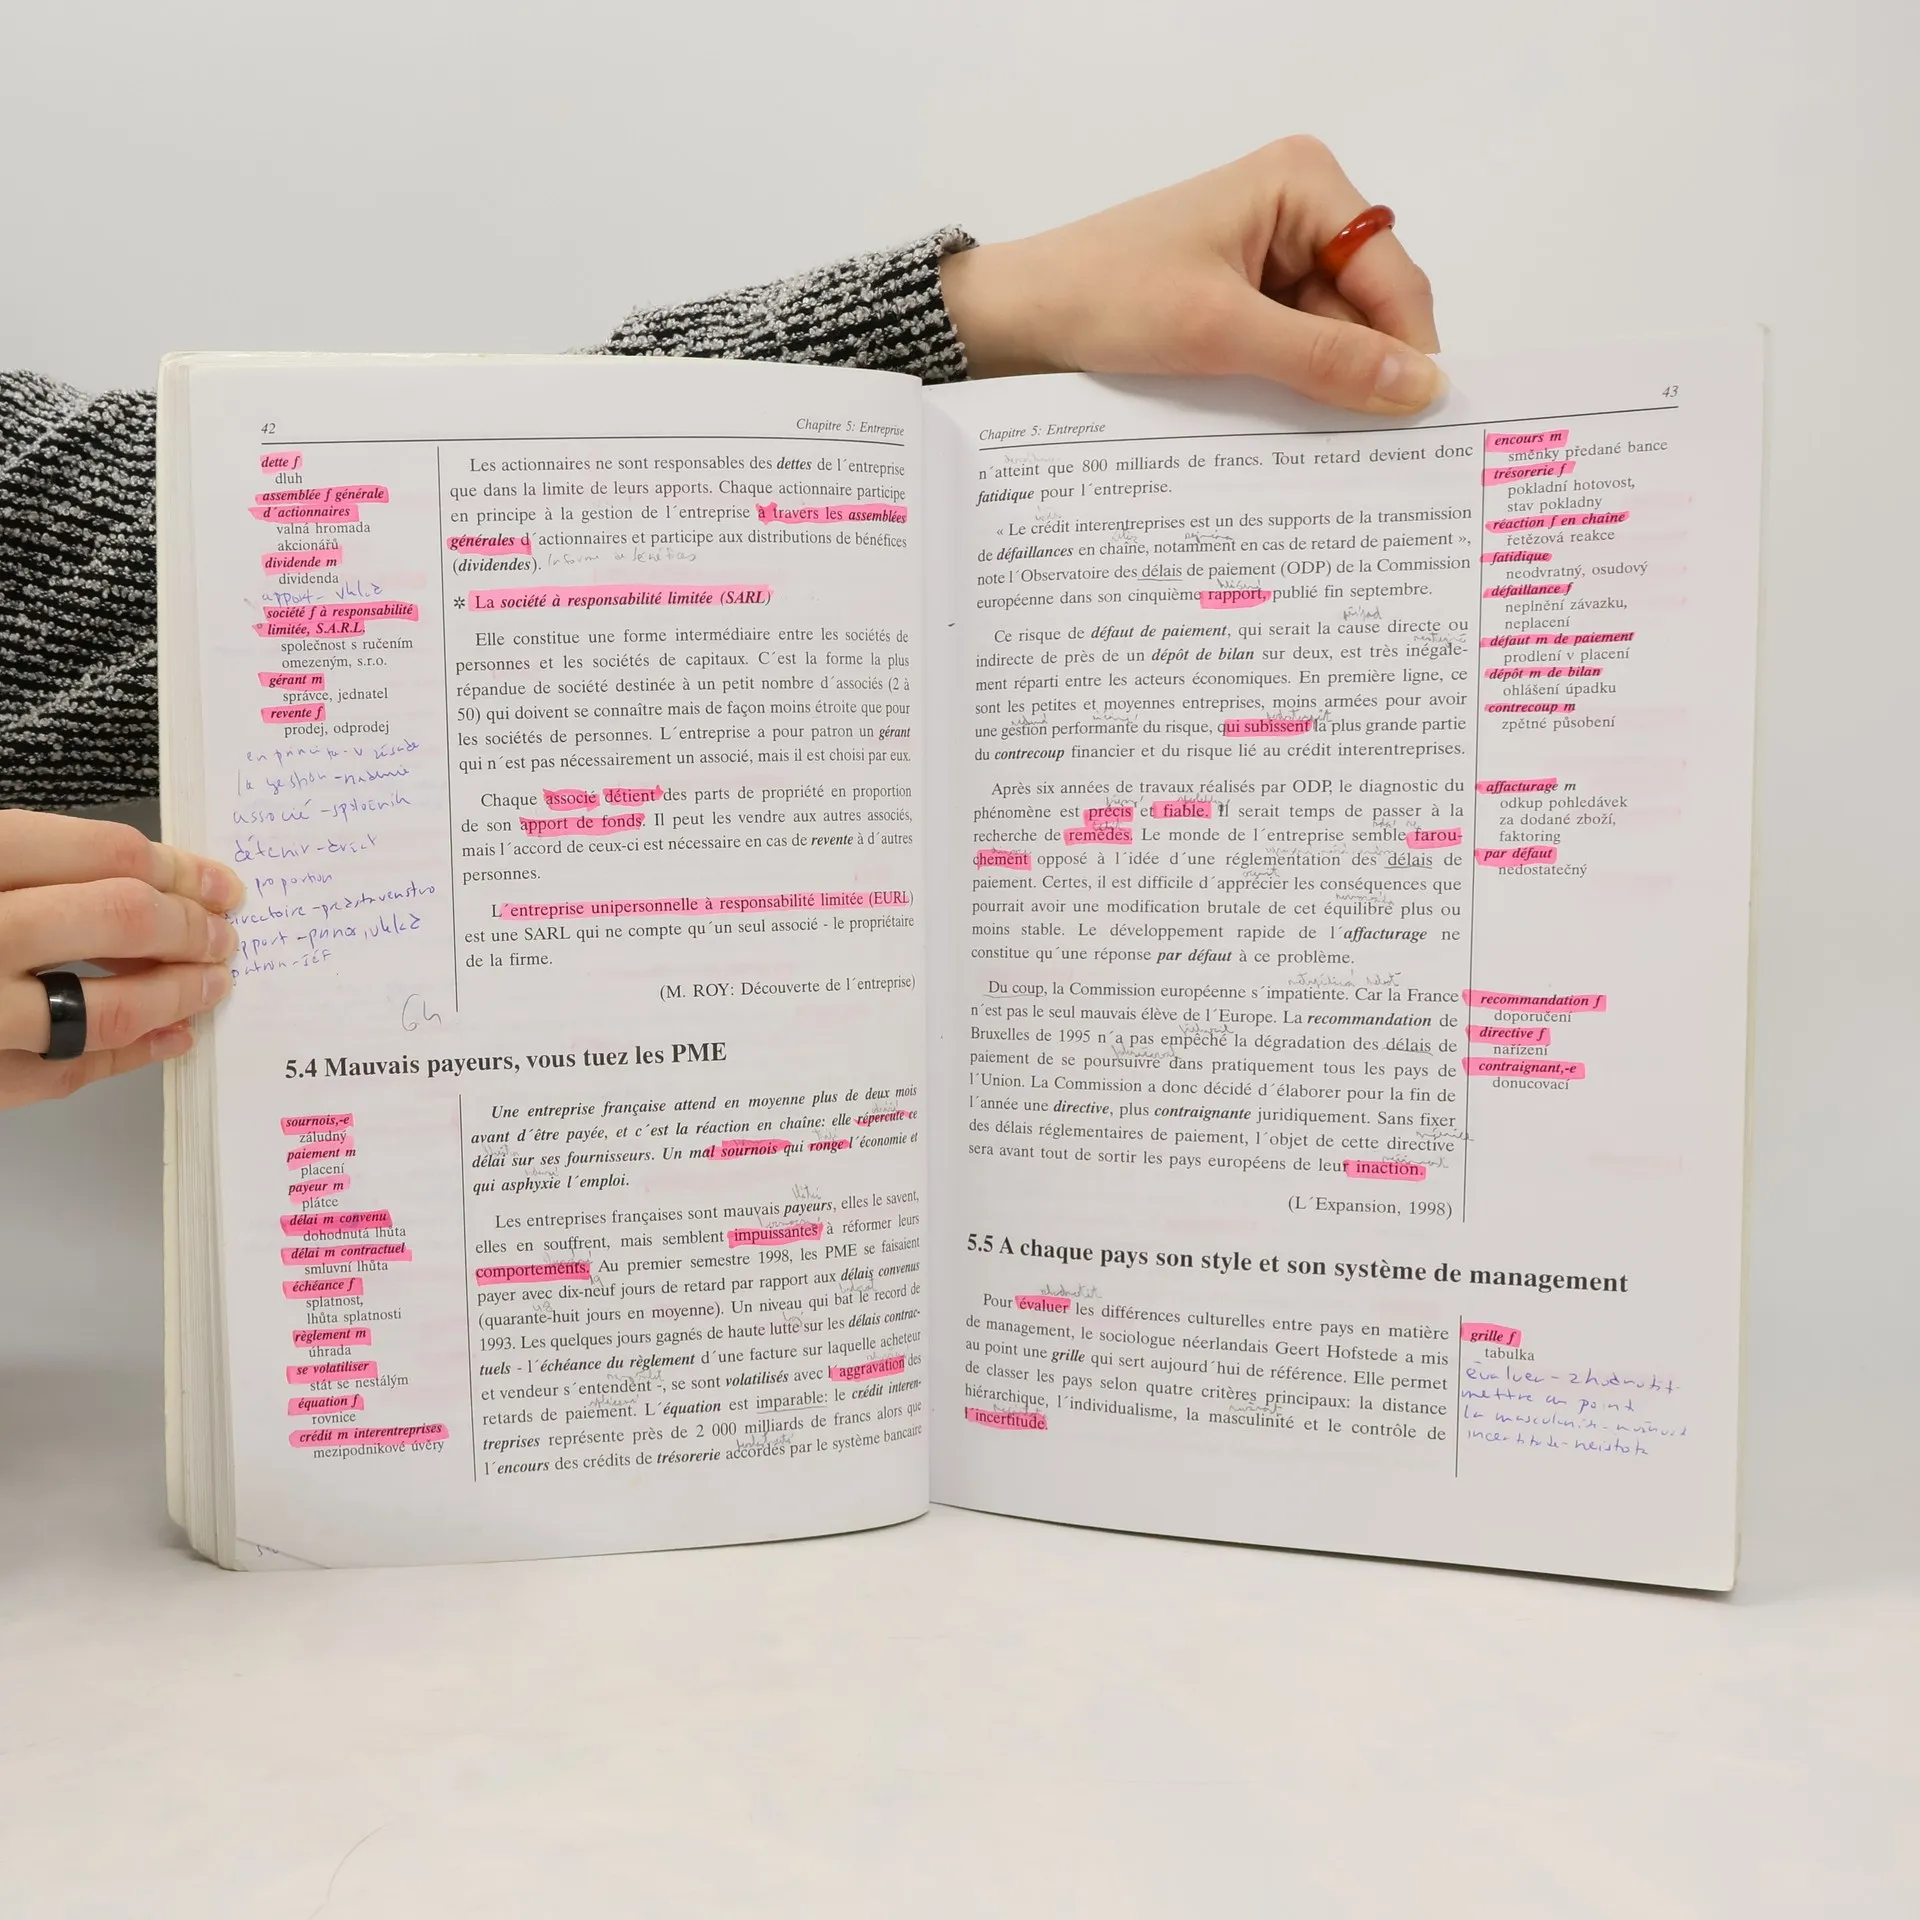 42
Chapitre 5: Entreprise
dette f
dluh
assemblée f générale
d´actionnaires
valná hromada
akcionářů
dividende m
dividenda
apport - vklad
société f à responsabilité
limitée, S.A.R.L.
společnost s ručením
omezeným, s.r.o.
gérant m
správce, jednatel
revente f
prodej, odprodej
en principe - v zásadě
la gestion -
associé - společník
détenir -
proportion
directoire - představenstvo
apport - přínos, vklad
patron - šéf
Les actionnaires ne sont responsables des dettes de l´entreprise
que dans la limite de leurs apports. Chaque actionnaire participe
en principe à la gestion de l´entreprise à travers les assemblées
générales d´actionnaires et participe aux distributions de bénéfices
(dividendes).
* La société à responsabilité limitée (SARL)
Elle constitue une forme intermédiaire entre les sociétés de
personnes et les sociétés de capitaux. C´est la forme la plus
répandue de société destinée à un petit nombre d´associés (2 à
50) qui doivent se connaître mais de façon moins étroite que pour
les sociétés de personnes. L´entreprise a pour patron un gérant
qui n´est pas nécessairement un associé, mais il est choisi par eux.
Chaque associé détient des parts de propriété en proportion
de son apport de fonds. Il peut les vendre aux autres associés,
mais l´accord de ceux-ci est nécessaire en cas de revente à d´autres
personnes.
L´entreprise unipersonnelle à responsabilité limitée (EURL)
est une SARL qui ne compte qu´un seul associé - le propriétaire
de la firme.
(M. ROY: Découverte de l´entreprise)
5.4 Mauvais payeurs, vous tuez les PME
sournois,-e
záludný
paiement m
placení
payeur m
plátce
délai m convenu
dohodnutá lhůta
délai m contractuel
smluvní lhůta
échéance f
splatnost,
lhůta splatnosti
règlement m
úhrada
se volatiliser
stát se nestálým
équation f
rovnice
crédit m interentreprises
mezipodnikové úvěry
Une entreprise française attend en moyenne plus de deux mois
avant d´être payée, et c´est la réaction en chaîne: elle répercute ce
délai sur ses fournisseurs. Un mal sournois qui ronge l´économie et
qui asphyxie l´emploi.
Les entreprises françaises sont mauvais payeurs, elles le savent,
elles en souffrent, mais semblent impuissantes à réformer leurs
comportements. Au premier semestre 1998, les PME se faisaient
payer avec dix-neuf jours de retard par rapport aux délais convenus
(quarante-huit jours en moyenne). Un niveau qui bat le record de
1993. Les quelques jours gagnés de haute lutte sur les délais contrac-
tuels - l´échéance du règlement d´une facture sur laquelle acheteur
et vendeur s´entendent -, se sont volatilisés avec l´aggravation des
retards de paiement. L´équation est imparable: le crédit interen-
treprises représente près de 2 000 milliards de francs alors que
l´encours des crédits de trésorerie accordés par le système bancaire
Chapitre 5: Entreprise
43
n´atteint que 800 milliards de francs. Tout retard devient donc
fatidique pour l´entreprise.
« Le crédit interentreprises est un des supports de la transmission
de défaillances en chaîne, notamment en cas de retard de paiement »,
note l´Observatoire des délais de paiement (ODP) de la Commission
européenne dans son cinquième rapport, publié fin septembre.
Ce risque de défaut de paiement, qui serait la cause directe ou
indirecte de près de un dépôt de bilan sur deux, est très inégale-
ment réparti entre les acteurs économiques. En première ligne, ce
sont les petites et moyennes entreprises, moins armées pour avoir
une gestion performante du risque, qui subissent la plus grande partie
du contrecoup financier et du risque lié au crédit interentreprises.
Après six années de travaux réalisés par ODP, le diagnostic du
phénomène est précis et fiable. Il serait temps de passer à la
recherche de remèdes. Le monde de l´entreprise semble farou-
chement opposé à l´idée d´une réglementation des délais de
paiement. Certes, il est difficile d´apprécier les conséquences que
pourrait avoir une modification brutale de cet équilibre plus ou
moins stable. Le développement rapide de l´affacturage ne
constitue qu´une réponse par défaut à ce problème.
Du coup, la Commission européenne s´impatiente. Car la France
n´est pas le seul mauvais élève de l´Europe. La recommandation de
Bruxelles de 1995 n´a pas empêché la dégradation des délais de
paiement de se poursuivre dans pratiquement tous les pays de
l´Union. La Commission a donc décidé d´élaborer pour la fin de
l´année une directive, plus contraignante juridiquement. Sans fixer
des délais réglementaires de paiement, l´objet de cette directive
sera avant tout de sortir les pays européens de leur inaction.
(L´Expansion, 1998)
encours m
směnky předané bance
trésorerie f
pokladní hotovost,
stav pokladny
réaction f en chaîne
řetězová reakce
fatidique
neodvratný, osudový
défaillance f
neplnění závazku,
neplacení
défaut m de paiement
prodlení v placení
dépôt m de bilan
ohlášení úpadku
contrecoup m
zpětné působení
affacturage m
odkup pohledávek
za dodané zboží,
faktoring
par défaut
nedostatečný
recommandation f
doporučení
directive f
nařízení
contraignant,-e
donucovací
5.5 A chaque pays son style et son système de management
Pour évaluer les différences culturelles entre pays en matière
de management, le sociologue néerlandais Geert Hofstede a mis
au point une grille qui sert aujourd´hui de référence. Elle permet
de classer les pays selon quatre critères principaux: la distance
hiérarchique, l´individualisme, la masculinité et le contrôle de
l´incertitude.
grille f
tabulka
évaluer - zhodnotit
mettre au point
la masculinité -
incertitude - nejistota